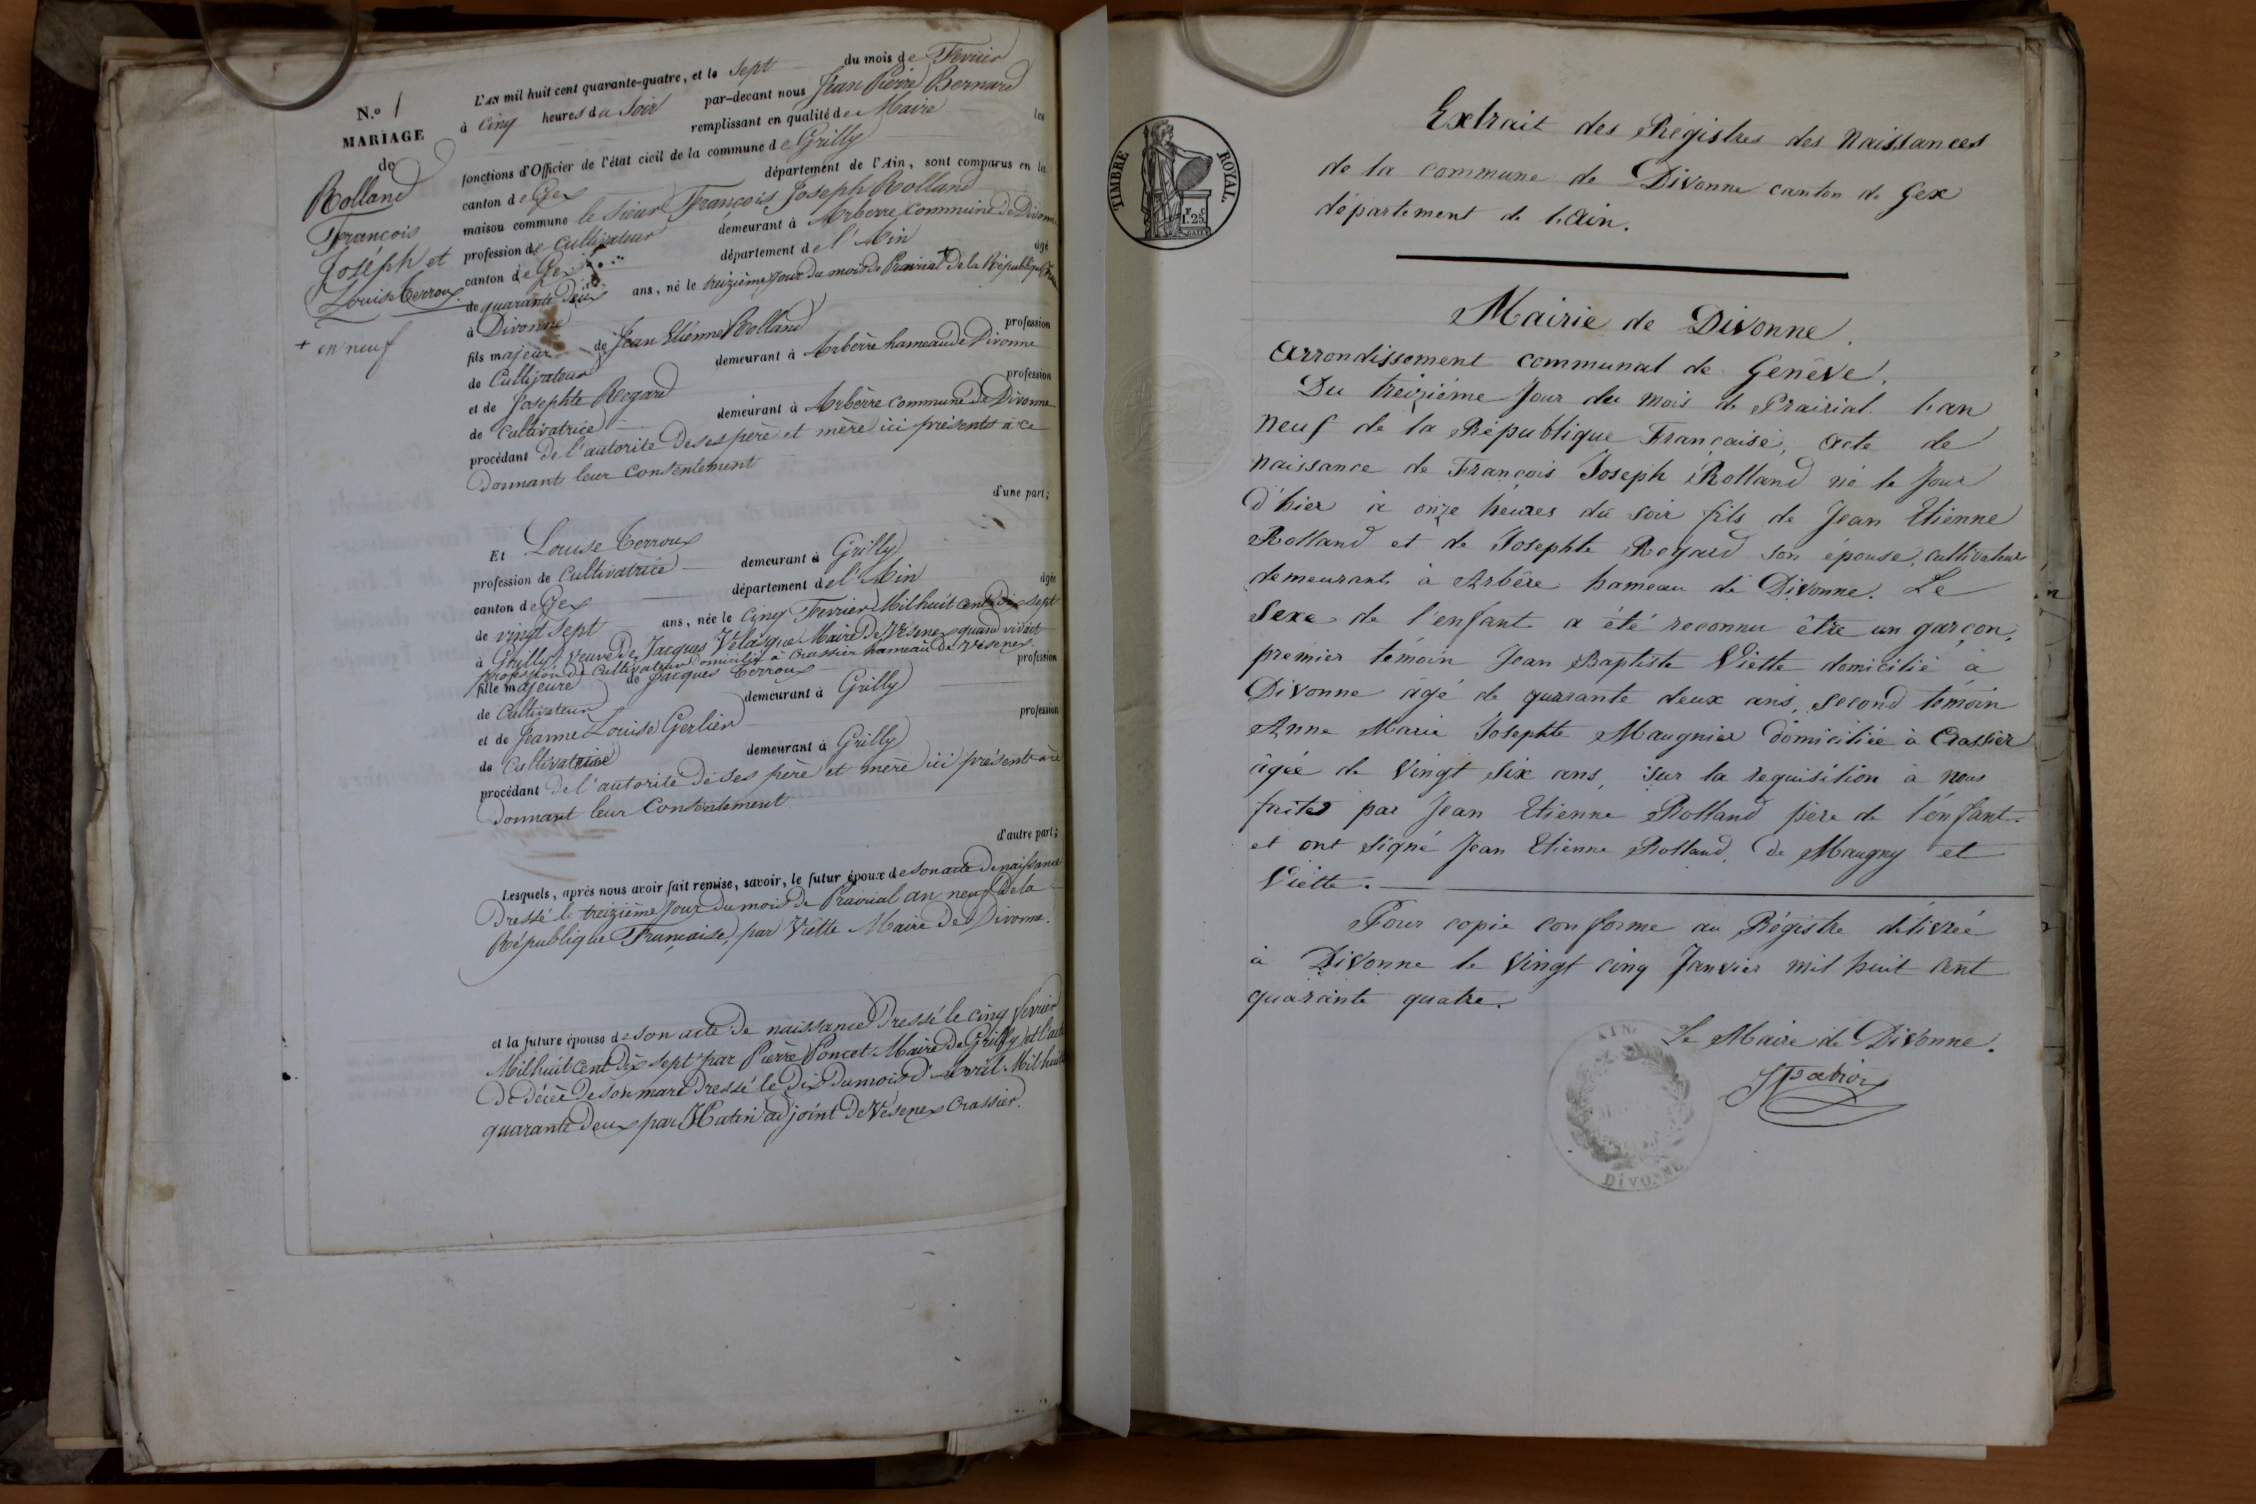 N.º 1
MARIAGE
de
Rolland
François
Joseph et
Louise Terroux.
+ en neuf
L'AN mil huit cent quarante-quatre, et le sept du mois de Fevrier
à cinq heures du Soir par-devant nous Jean Pierre Bernard
remplissant en qualité de Maire les
fonctions d'Officier de l'état civil de la commune de Grilly
canton de Gex département de l'Ain, sont comparus en la
maison commune le Sieur François Joseph Rolland
profession de Cultivateur demeurant à Arberre commune de Divonne
canton de Gex département de l'Ain âgé
de quarante deux ans, né le treizième jour du mois de Prairial + de la République
à Divonne
fils majeur de Jean Etienne Rolland profession
de Cultivateur demeurant à Arbèrre hameau de Divonne
et de Josephte Regard profession
de Cultivatrice demeurant à Arbèrre commune de Divonne
procédant de l'autorité de ses père et mère ici présents à ce
donnants leur consentement
d'une part;
Et Louise Terroux
profession de Cultivatrice demeurant à Grilly
canton de Gex département de l'Ain âgée
de vingt sept ans, née le cinq Fevrier Mil huit cent dix sept
à Grilly, Veuve de Jacques Vélasque Maire de Vésenex quand vivait
profession de Cultivateur domicilié à Crassier hameau de Vésenex
fille majeure de Jacques Terroux profession
de Cultivateur demeurant à Grilly
et de Jeanne Louise Gerlier profession
de Cultivatrice demeurant à Grilly
procédant de l'autorité de ses père et mère ici présents à ce
donnant leur Consentement
d'autre part;
Lesquels, après nous avoir fait remise, savoir, le futur époux de son acte de naissance
Dressé le treizième jour du mois de Prairial an neuf de la
République Française, par Viette Maire de Divonne.
et la future épouse de son acte de naissance Dressé le cinq fevrier
Mil huit cent dix sept par Pierre Poncet Maire de Grilly et l'acte
de décès de son mari dressé le Dix du mois d'Avril Mil huit
quarante deux par adjoint de Vésenex Crassier.
TIMBRE ROYAL.
1.25
Extrait des Régistres des Naissances
de la commune de Divonne canton de Gex
département de l'Ain.
Mairie de Divonne.
Arrondissement communal de Genève.
Du treizième jour du mois de Prairial l'an
neuf de la République Française, acte de
naissance de François Joseph Rolland né le jour
d'hier à onze heures du soir fils de Jean Etienne
Rolland et de Josephte Regard son épouse, cultivateurs
demeurants à Arbère hameau de Divonne. Le
Sexe de l'enfant a été reconnu être un garçon,
premier témoin Jean Baptiste Viette domicilié à
Divonne âgé de quarante deux ans, second témoin
Anne Marie Josephte Maugnier domiciliée à Crassier
âgée de Vingt Six ans, sur la requisition à nous
faites par Jean Etienne Rolland père de l'enfant.
et ont signé Jean Etienne Rolland, de Maugny et
Viette.
Pour copie conforme au Régistre délivrée
à Divonne le Vingt cinq Janvier mil huit cent
quarante quatre.
Le Maire de Divonne.
AIN.
DIVONNE